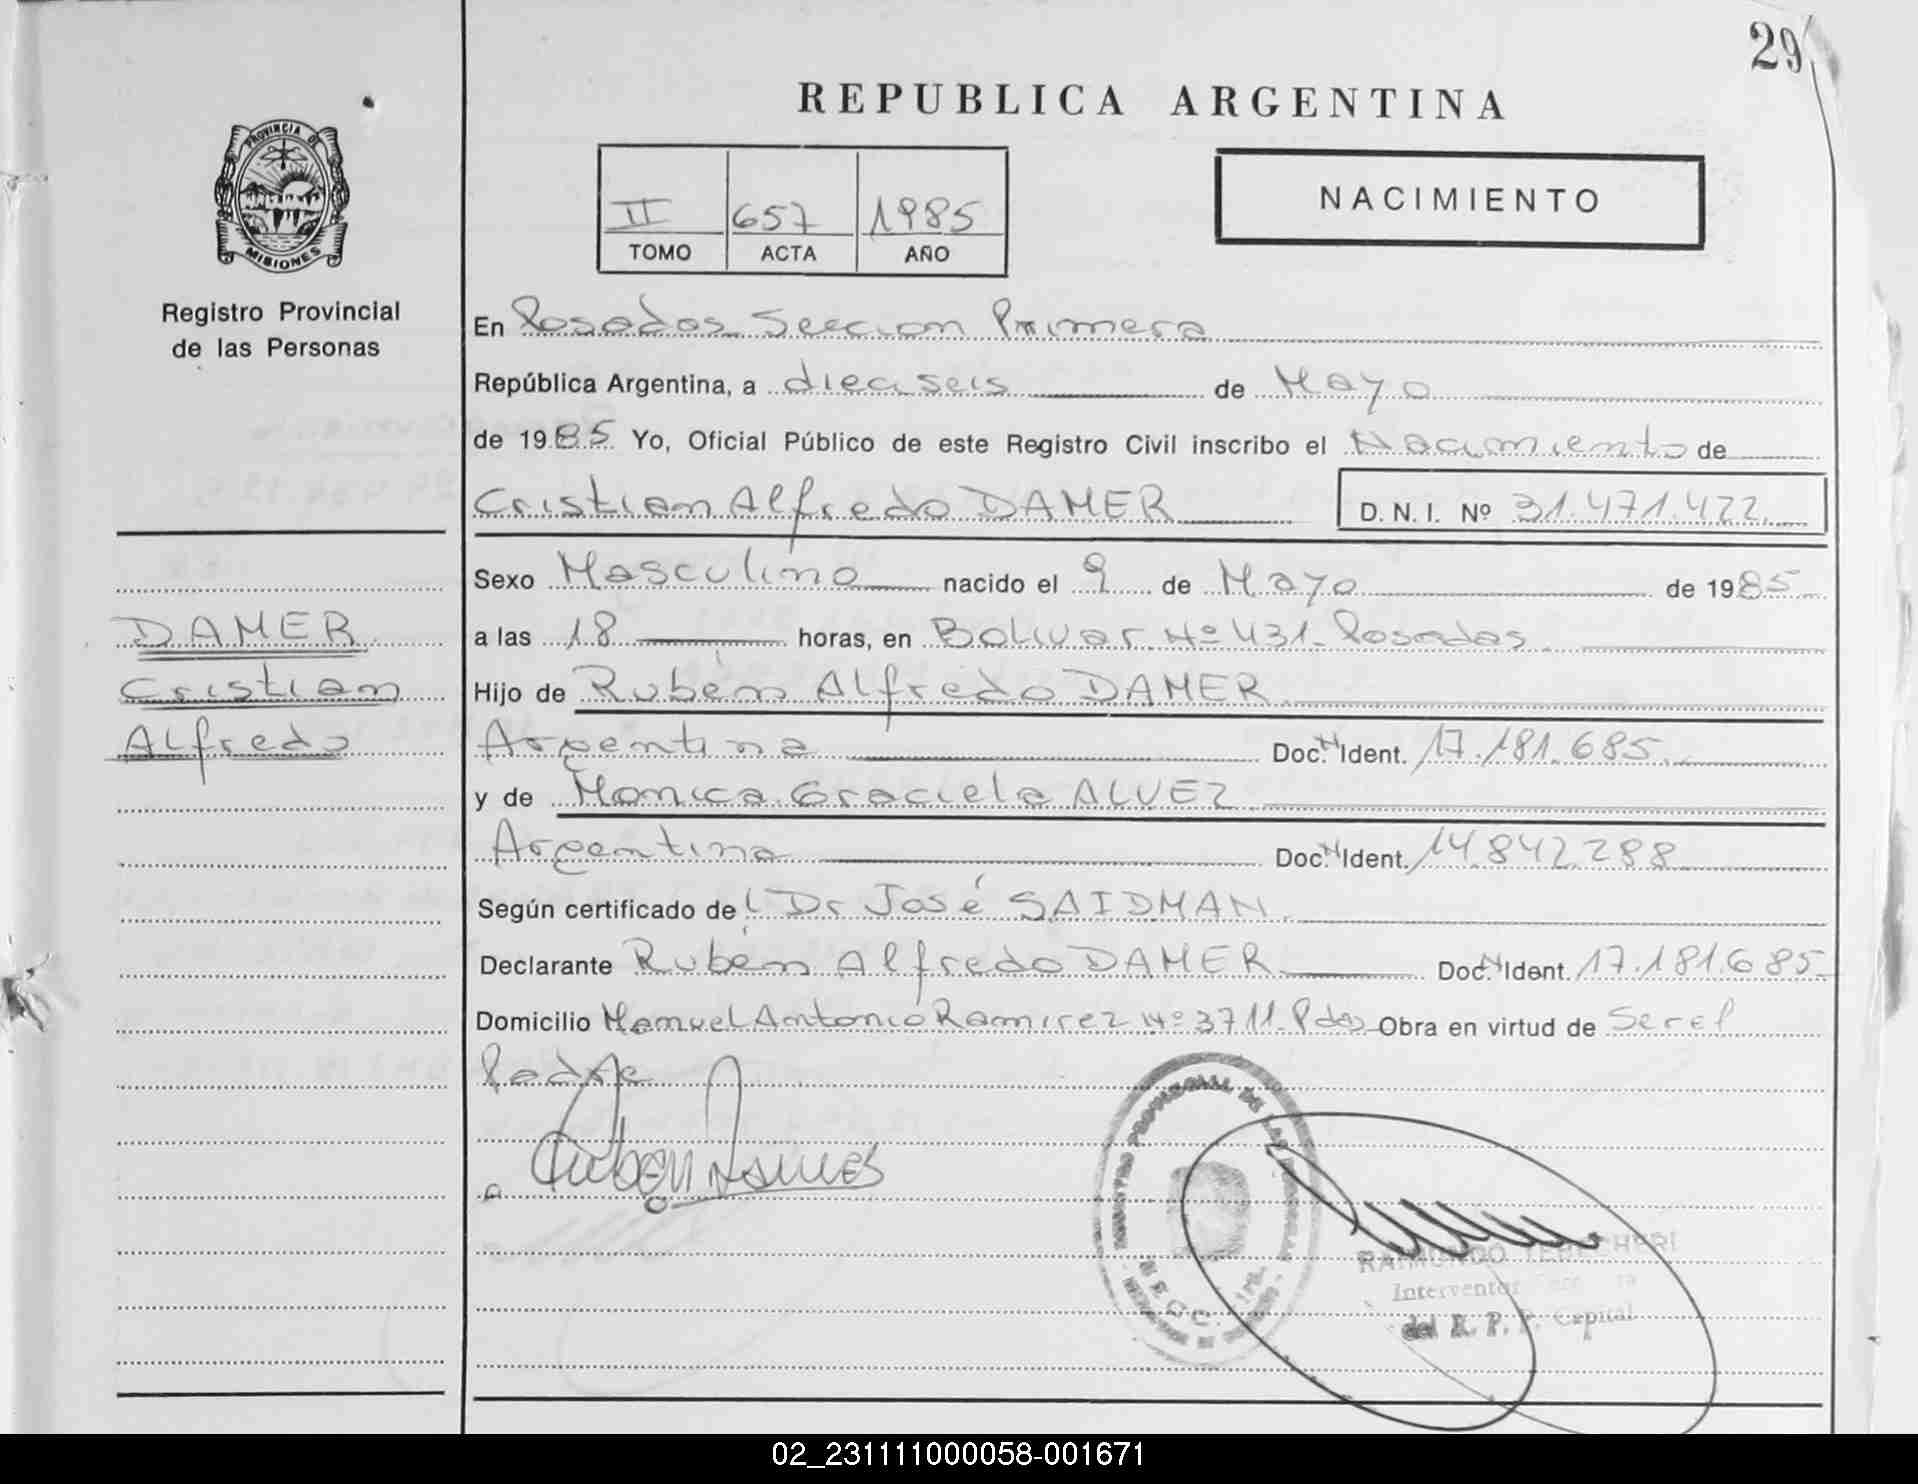 29
REPUBLICA ARGENTINA
PROVINCIA DE
MISIONES
Registro Provincial
de las Personas
II 657 1985
TOMO ACTA AÑO
NACIMIENTO
En Posadas Seccion Primera
República Argentina, a dieciseis de Mayo
de 1985 Yo, Oficial Público de este Registro Civil inscribo el Nacimiento de
Cristian Alfredo DAMER D.N.I. Nº 31.471.422
Sexo Masculino nacido el 9 de Mayo de 1985
DAMER
Cristian
Alfredo
a las 18 horas, en Bolivar Nº 431- Posadas
Hijo de Rubén Alfredo DAMER
Argentina Doc. N Ident. 17.181.685
y de Monica Graciela ALVEZ
Argentina Doc. N Ident. 14.842.288
Según certificado del Dr José SAIDMAN
Declarante Rubén Alfredo DAMER Doc. N Ident. 17.181.685
Domicilio Manuel Antonio Ramirez Nº 3711- Pdas Obra en virtud de Ser el
Padre
Ruben Damer
REGISTRO PROVINCIAL DE LAS PERSONAS
RAIMUNDO
Interventor
del R. P. P. Capital
02_231111000058-001671